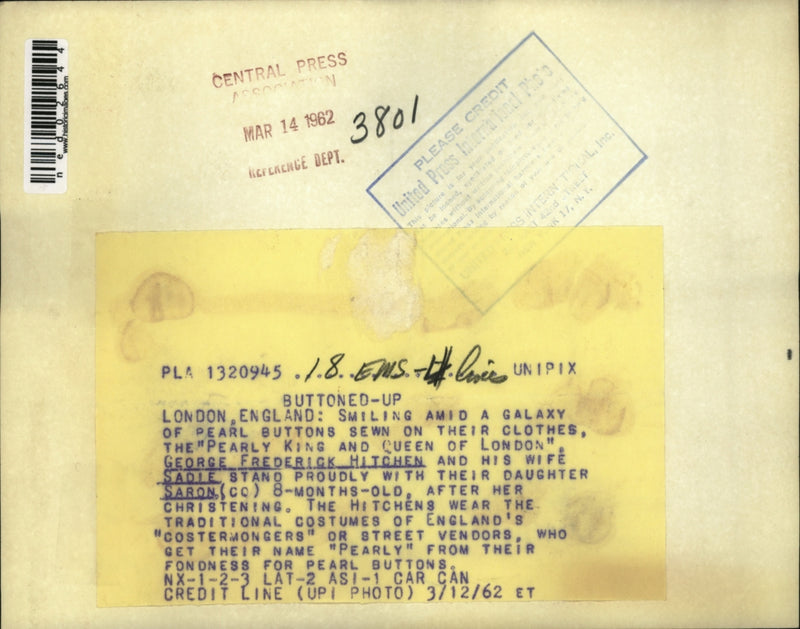 ned02644
www.historicimages.com
CENTRAL PRESS
ASSOCIATION
MAR 14 1962
REFERENCE DEPT.
3801
PLEASE CREDIT
United Press International Photo
This picture is for
PLA 1320945 .1.8. EMS. UNIPIX
BUTTONED-UP
LONDON,ENGLAND: SMILING AMID A GALAXY
OF PEARL BUTTONS SEWN ON THEIR CLOTHES,
THE"PEARLY KING AND QUEEN OF LONDON",
GEORGE FREDERICK HITCHEN AND HIS WIFE
SADIE STAND PROUDLY WITH THEIR DAUGHTER
SARON,(CQ) 8-MONTHS-OLD, AFTER HER
CHRISTENING. THE HITCHENS WEAR THE
TRADITIONAL COSTUMES OF ENGLAND'S
"COSTERMONGERS" OR STREET VENDORS, WHO
GET THEIR NAME "PEARLY" FROM THEIR
FONDNESS FOR PEARL BUTTONS.
NX-1-2-3 LAT-2 ASI-1 CAR CAN
CREDIT LINE (UPI PHOTO) 3/12/62 ET